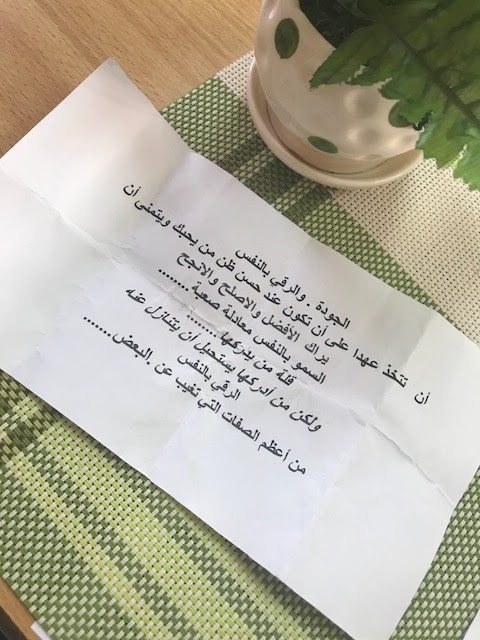 الجودة . والرقي بالنفس
أن تتخذ عهدا على أن تكون عند حسن ظن من يحبك ويتمنى أن
يراك الأفضل والاصلح والانجح
السمو بالنفس معادلة صعبة........
قلة من يدركها ......
ولكن من ادركها يستحيل ان يتنازل عنه
الرقي بالنفس
من أعظم الصفات التي تغيب عن .البعض.......